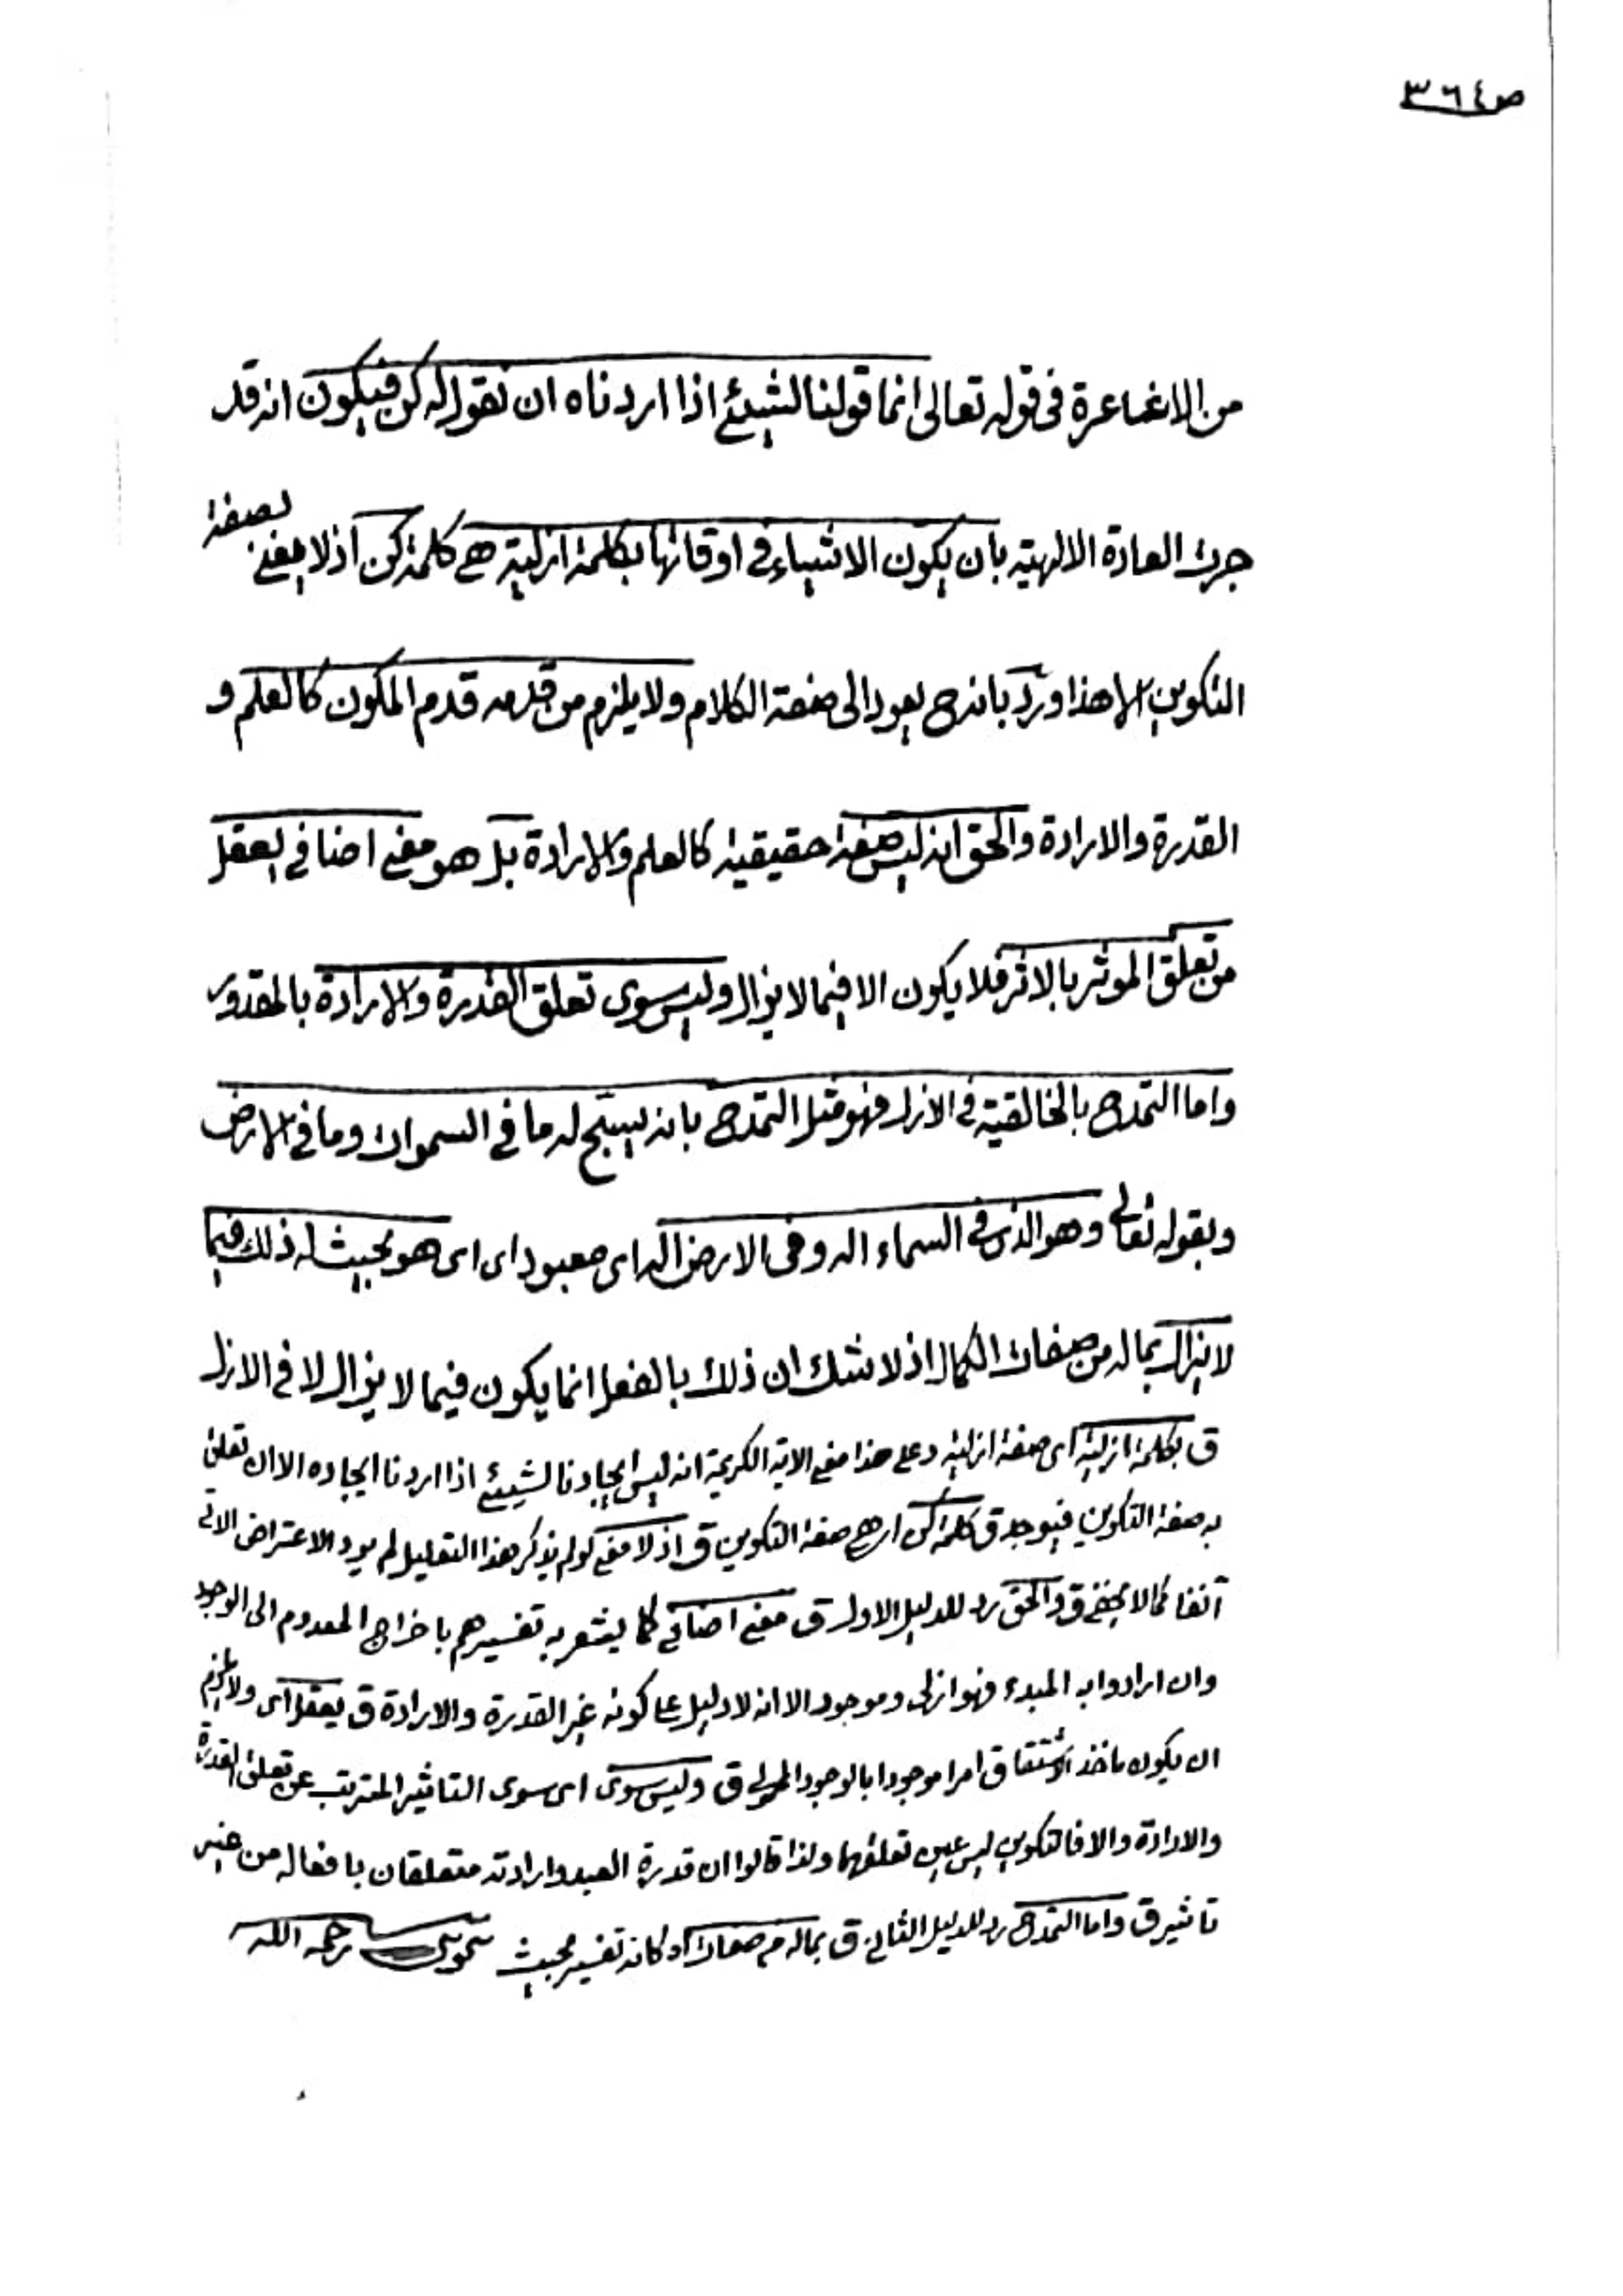 ص٣٦٤
من الاشاعرة فى قوله تعالى انما قولنا لشيئ اذا اردناه ان نقول له كن فيكون انه قد
جرت العادة الالهية بان يكون الاشياء فى اوقاتها بكلمة ازلية هى كلمة كن اذ لا معنى لصفة
التكوين الا هذا ورد بانه ح يعود الى صفة الكلام ولا يلزم من قدمه قدم المكون كالعلم و
القدرة والارادة والحق انه ليس صفة حقيقية كالعلم والارادة بل هو معنى اضافى يعقل
من تعلق الموثر بالاثر فلا يكون الا فيما لا يزال وليس سوى تعلق القدرة والارادة بالمقدور
واما التمدح بالخالقية فى الازل فهو مثل التمدح بانه يسبح له ما فى السموات وما فى الارض
وبقوله تعالى وهو الذى فى السماء اله وفى الارض اله اى معبود اى اى هو بحيث له ذلك فيما
لا يزال بماله من صفات الكمال اذ لا شك ان ذلك بالفعل انما يكون فيما لا يزال لا فى الازل
ق بكلمة ازلية اى صفة ازلية وعلى هذا معنى الاية الكريمة انه ليس ايجادنا لشيئ اذا اردنا ايجاده الا ان تعلق
به صفة التكوين فيوجد ق كلمة كن اى هى صفة التكوين ق اذ لا معنى لو لم يذكر هذا التعليل لم يرد الاعتراض الاتى
آنفا كما لا يخفى ق والحق رد للدليل الاول ق معنى اضافى كما يشعر به تفسيرهم باخراج المعدوم الى الوجود
وان ارادوا به المبدء فهو ازلى وموجود الا انه لا دليل على كونه غير القدرة والارادة ق يعقل اى ولا يلزم
ان يكون ماخذ الاشتقاق امرا موجودا بالوجود ق وليس سوى اى سوى التاثير المترتب عن تعلق القدرة
والارادة والا فالتكوين ليس عين تعلقهما ولذا قالوا ان قدرة العبد وارادته متعلقان بافعاله من غير
تاثير ق واما التمدح رد للدليل الثانى ق بماله من صفات اه كانه تفسير بحيث رحمه الله